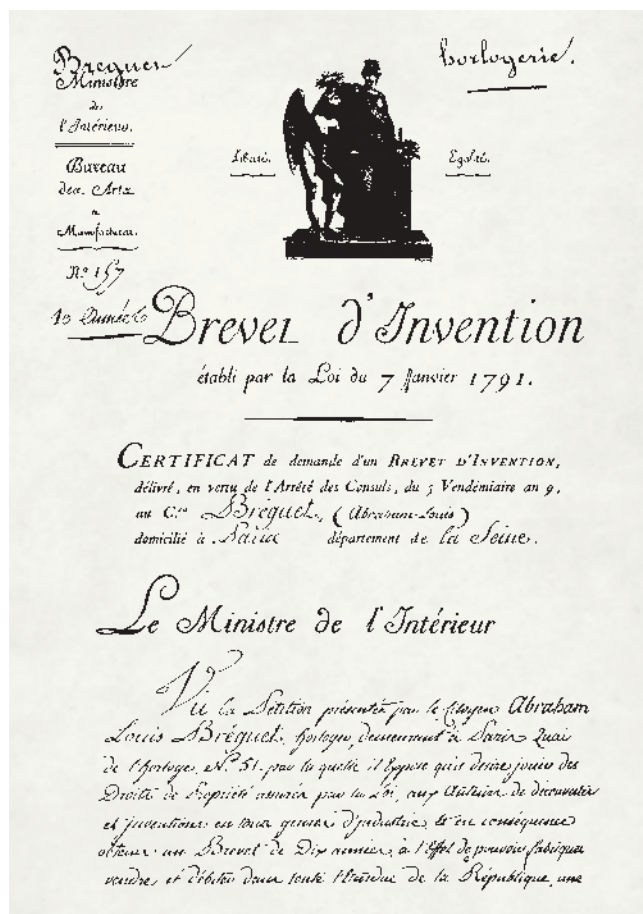 Breguet
horlogerie.
Ministre
de
l'Intérieur.
Bureau
des Arts
&
Manufactures.
N.º 157
10 Années
Liberté.
Egalité.
Brevet d'Invention
établi par la Loi du 7 Janvier 1791.
CERTIFICAT de demande d'un BREVET D'INVENTION,
délivré, en vertu de l'Arrêté des Consuls, du 5 Vendémiaire an 9,
au C.en Bréguet, (Abraham-Louis)
domicilié à Paris département de la Seine.
Le Ministre de l'Intérieur
Vu la Pétition présentée par le Citoyen Abraham
Louis Bréguet, horloger, demeurant à Paris Quai
de l'horloge, N.º 51. par laquelle il Expose qu'il désire jouir des
Droits de Propriété assurés par la Loi, aux Auteurs de découvertes
et Inventions en tout genre d'industrie, & en conséquence
obtenir un Brevet de Dix années, à l'Effet de pouvoir fabriquer
vendre, et débiter dans toute l'étendue de la République, une